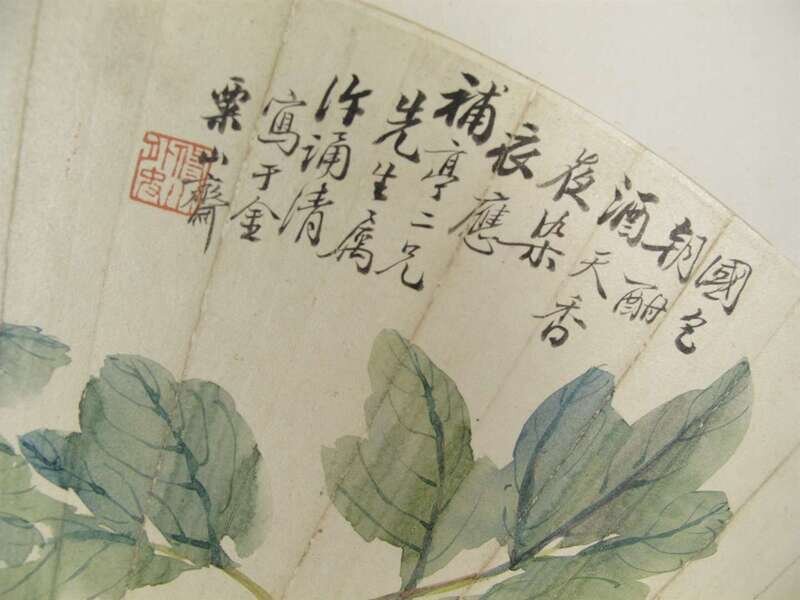 國色
朝酣
酒天香
夜染
衣應
補亭二兄
先生属
許誦清
寫于金
粟山齋